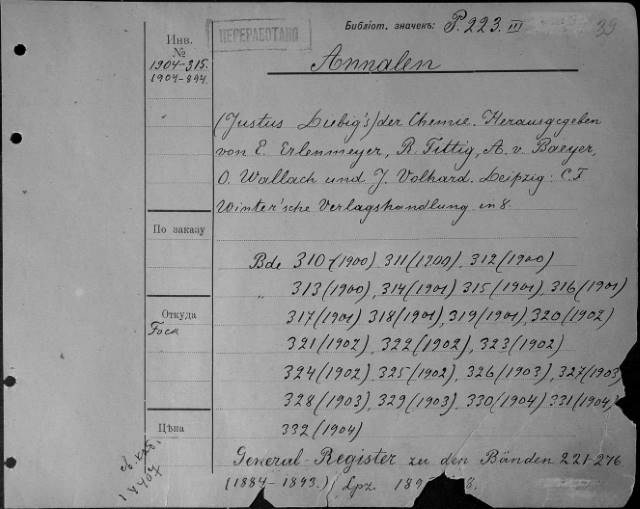 Библіот. значекъ: P. 223. III
39
ПЕРЕРАБОТАНО
Инв.
№
1904-315.
1904-894.
Annalen
(Justus Liebig's) der Chemie. Herausgegeben
von E. Erlenmeyer, R. Fittig, A. v. Baeyer,
O. Wallach und J. Volhard. Leipzig: C.F.
Winter'sche Verlagshandlung in 8.
По заказу
Bde 310 (1900), 311 (1900), 312 (1900)
„ 313 (1900), 314 (1901) 315 (1901), 316 (1901)
Откуда
Госк
317 (1901) 318 (1901), 319 (1901), 320 (1902)
321 (1902) 322 (1902), 323 (1902)
324 (1902) 325 (1902), 326 (1903), 327 (1903)
328 (1903), 329 (1903), 330 (1904) 331 (1904),
Цѣна
332 (1904)
General-Register zu den Bänden 221-276
(1884-1893.) Lpz. 189 8.